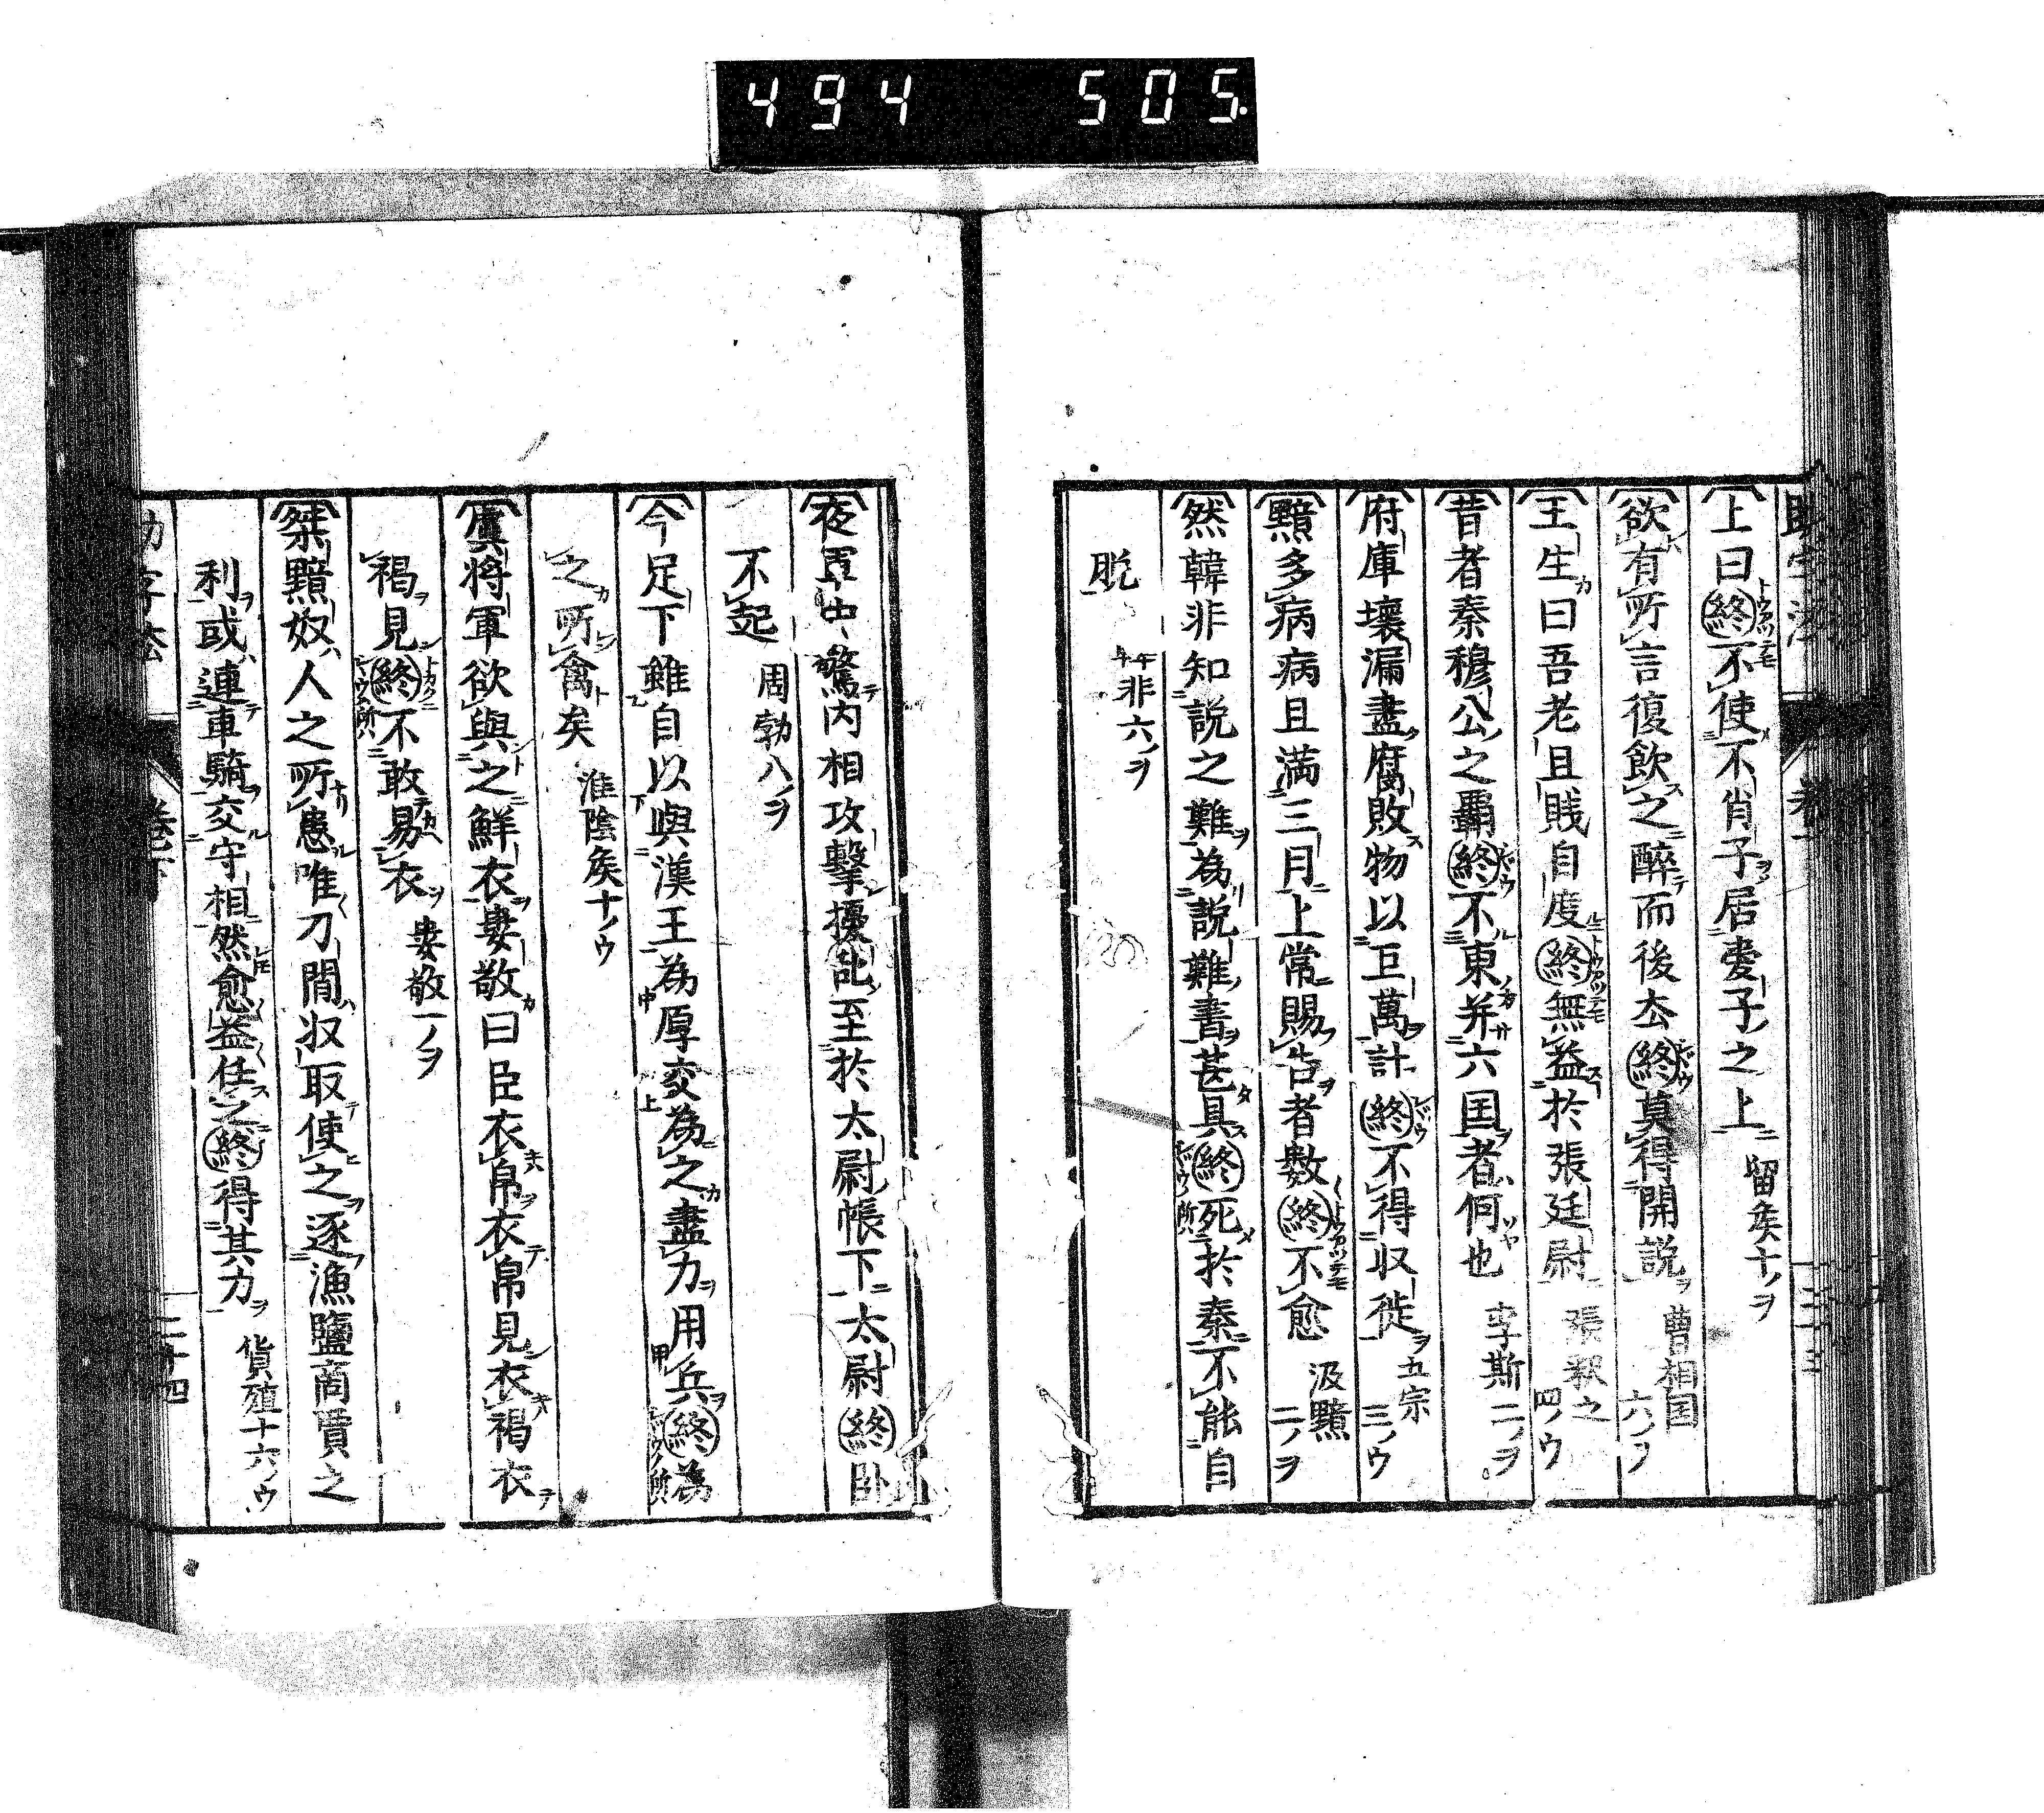 494 505.
上曰終不使不肖子居愛子之上 留矦十ノヲ
欲有所言復飲之醉而後去終莫得開説 曹相国六ノヲ
王生曰吾老且賤自度終無益於張廷尉 張釈之四ノウ
昔者秦穆公之覇終不東并六国者何也 李斯二ノヲ
府庫壊漏盡腐敗物以巨萬計終不得収徙 五宗三ノウ
黯多病病且満三月上常賜告者數終不愈 汲黯二ノヲ
然韓非知説之難為説難書甚具終死於秦不能自
脱 韓非六ノヲ
夜軍中驚内相攻擊擾乱至於太尉帳下太尉終臥
不起 周勃八ノヲ
今足下雖自以與漢王為厚交為之盡力用兵終為
之所禽矣 淮陰矦十ノウ
虞将軍欲與之鮮衣婁敬曰臣衣帛衣帛見衣褐衣
褐見終不敢易衣 婁敬一ノヲ
桀黠奴人之所患唯刀閒収取使之逐漁鹽商賈之
利或連車騎交守相然愈益任之終得其力 貨殖十六ノウ
二十四